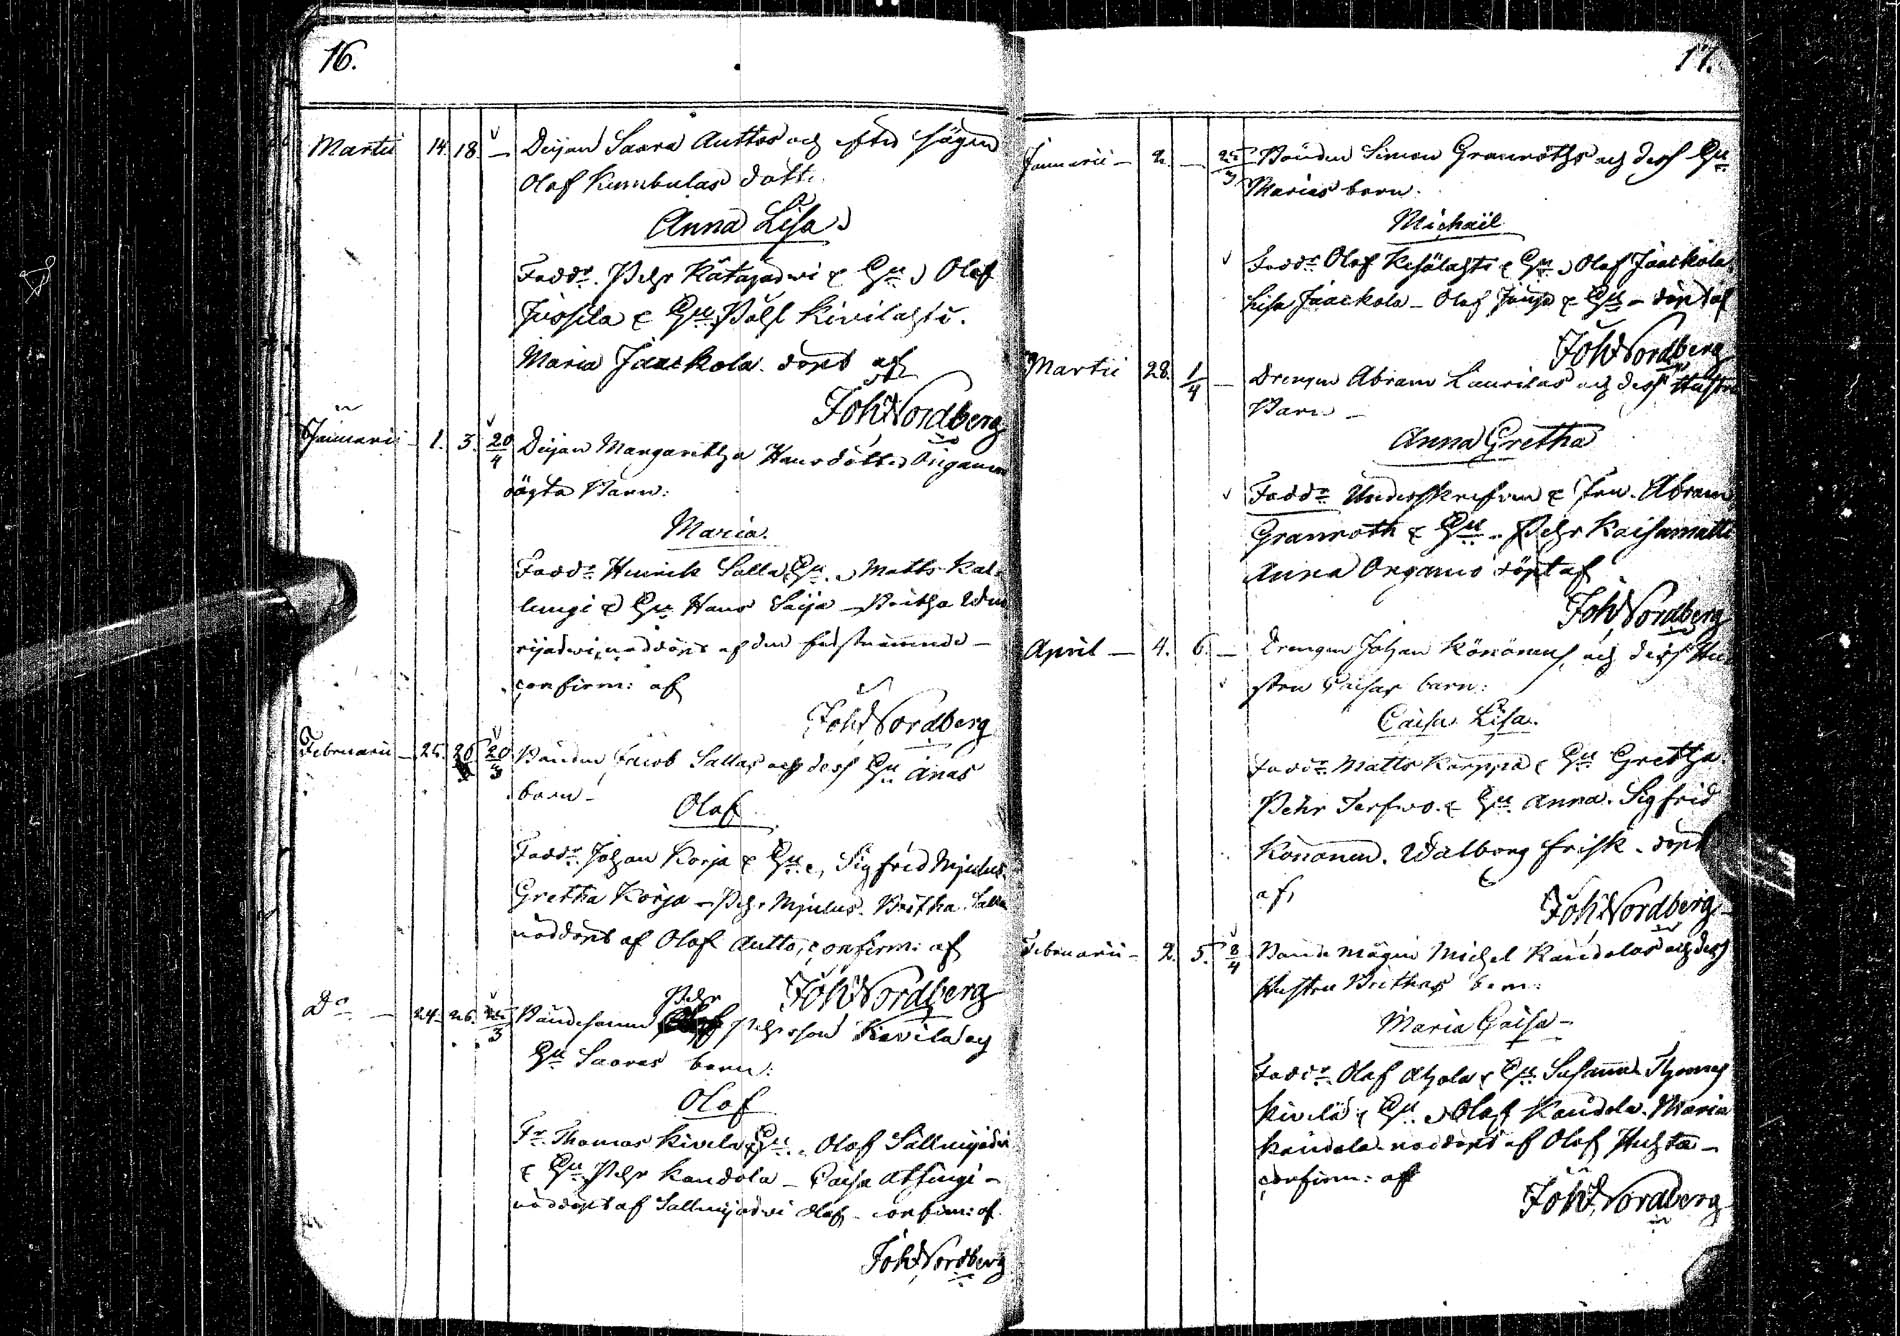 16.
Martii 14. 18. – Pigan Saara Auttos och efter sägen
Olof Kumbulas dotte.
Anna Lisa
Fadd:r Pehr Kätajärwi & Hu Olof
Jussila & Hu Påhl Kivilahti.
Maria Jaackola. döpt af
Joh Nordberg
Januarii 1. 3. 20/4 Pigan Margaretha Hansdotter
oägta Barn:
Maria.
Fadd:r Henrik Salla Hu Matts Kal-
lungi & Hu Hans Saija – Britha
nöddöpt af den
confirm: af
Joh Nordberg
Februarii – 25. 26 20/3 Bonden Jacob Sallas och dess Hu Anas
barn –
Olof
Fadd:r Johan Korja & Hu Sigfrid Mjulus.
Gretha Korja – Pehr Mjulus. Britha Salla
nöddöpt af Olof Autto, confirm: af
Joh Nordberg
D:o – 24. 26. Bondesonen Pehr Pehrsson Kivila och
Hu Saaras barn:
Olof
F:r Thomas Kivela & Hu Olof Sallmijärwi
& Hu Pehr Kandola – Caisa Atsingi –
nöddöpt af Sallmijärwi Olof – confirm: af
Joh Nordberg
17.
Januarii – 2. – Bonden Simon Granroths och dess Hu
Marias barn.
Michaël
Fadd:r Olof Kesälahti & Hu Olof Jaackola,
Lisa Jaackola – Olof & Hu – döpt af
Joh Nordberg
Martii 28. 1/4 – Drengen Abram Laurilas och dess Hustru
Barn –
Anna Gretha
Fadd:r Underskrifven & Fru. Abram
Granroth & Hu – Pehr Kaisamatti
Anna Organio döpt af
Joh Nordberg
April – 4. 6. – Drengen Johan Könönens, och dess Hu-
stru Caisas barn:
Caisa Lisa.
Fadd:r Matts Karppa & Hu Gretha.
Pehr Terfwo. & Hu Anna. Sigfrid
Könönen. Walborg Frisk – döpt
af,
Joh Nordberg
Februarii – 2. 5. 8/4 Bonde mågen Michel Kandolas och dess
Hustru Brithas barn:
Maria Caisa –
Fadd:r Olof Ahola & Hu Susanna Thomas
Kivelä & Hu Olof Kandola. Maria
Kandola nöddöpt af Olof Huhta –
confirm: af
Joh Nordberg